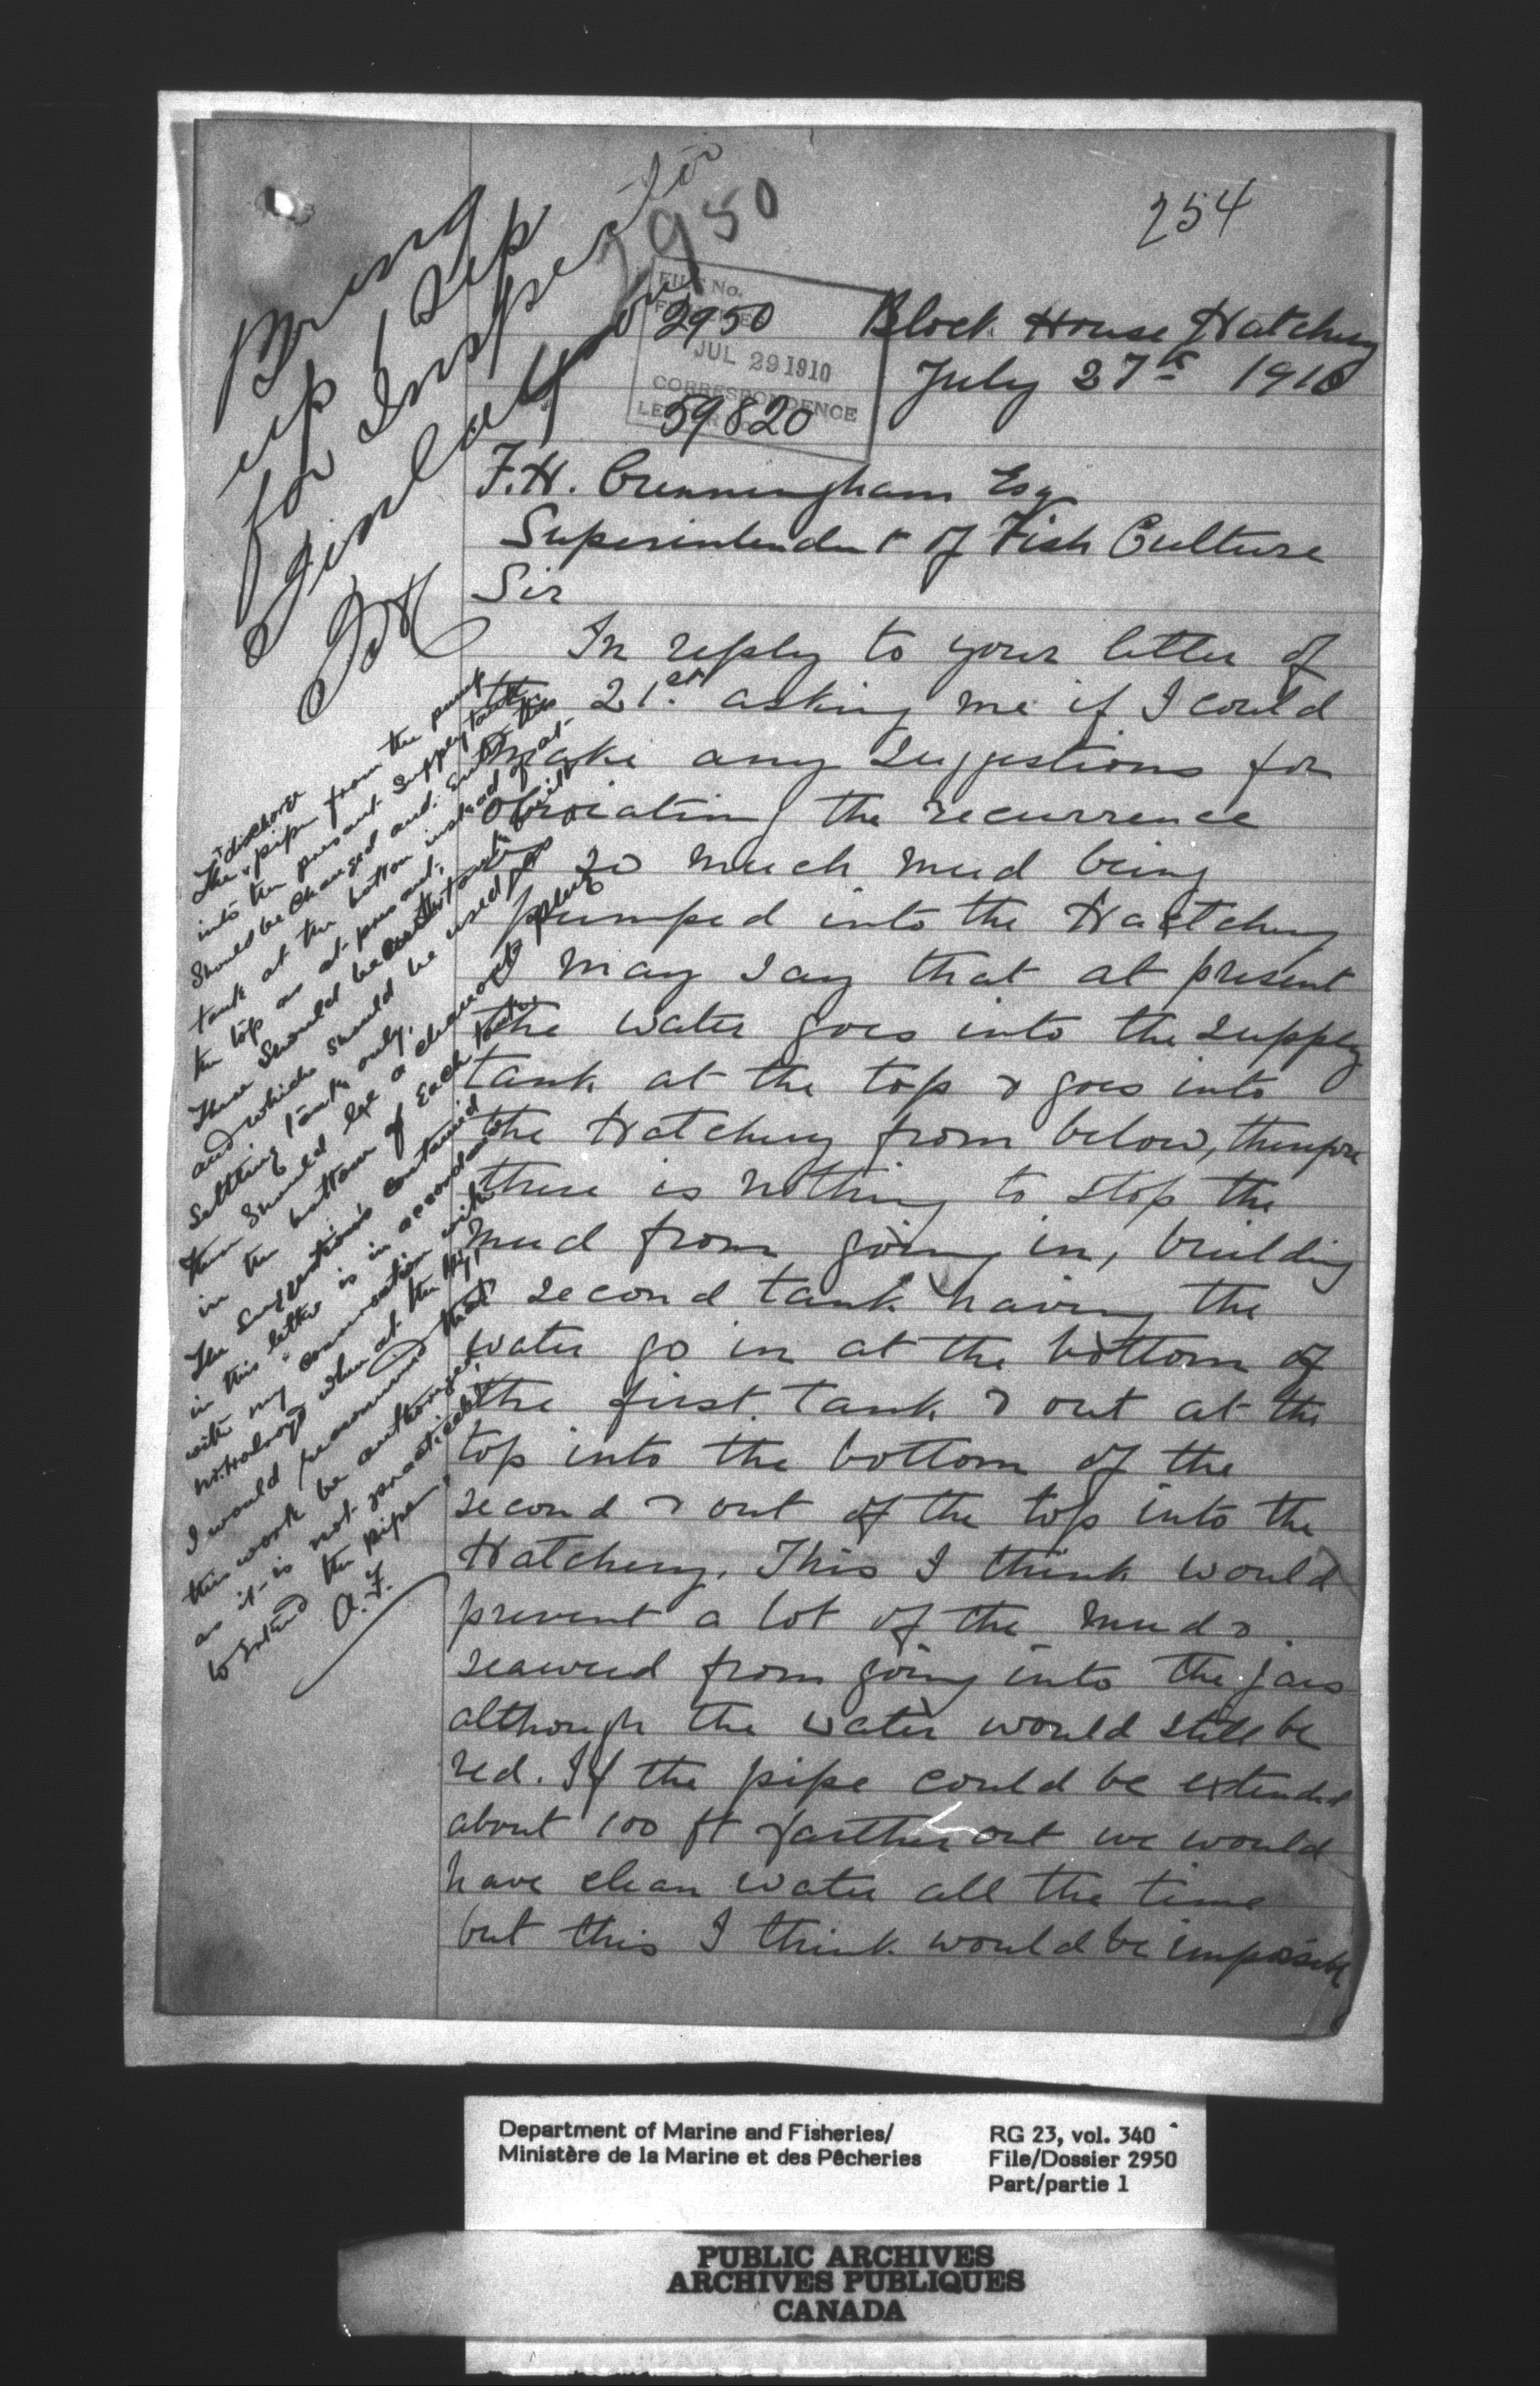 254
2950
Bring
up 1 Sep
for Inspector
Finlayson
FILE No.
2950
JUL 29 1910
CORRESPONDENCE
59820
Block House Hatchery
July 27th 1910
F.H. Cunningham Esq
Superintendent of Fish Culture
Sir
In reply to your letter of
the 21st. asking me if I could
make any suggestions for
obviating the recurrence
so much mud being
pumped into the Hatchery
I may say that at present
the water goes into the supply
tank at the top & goes into
the Hatchery from below, therefore
there is nothing to stop the
mud from going in, building
a second tank having the
water go in at the bottom of
the first tank & out at the
top into the bottom of the
second & out of the top into the
Hatchery. This I think would
prevent a lot of the mud &
seaweed from going into the jars
although the water would still be
red. If the pipe could be extended
about 100 ft farther out we would
have clean water all the time
but this I think would be impossible
The discharge pipe from the pump
into the present supply tank
should be changed and. Enter the
tank at the bottom instead of at
the top as at present.
There should be another tank built
and which should be used for
settling tank only.
There should be a cleanout plug
in the bottom of Each tank.
The suggestions contained
in this letter is in accordance
with my conversation with
when at the Hy,
I would recommend that
this work be authorized,
as it is not practicable
to Extend the pipe.
A.F.
Department of Marine and Fisheries/
Ministère de la Marine et des Pêcheries
RG 23, vol. 340
File/Dossier 2950
Part/partie 1
PUBLIC ARCHIVES
ARCHIVES PUBLIQUES
CANADA